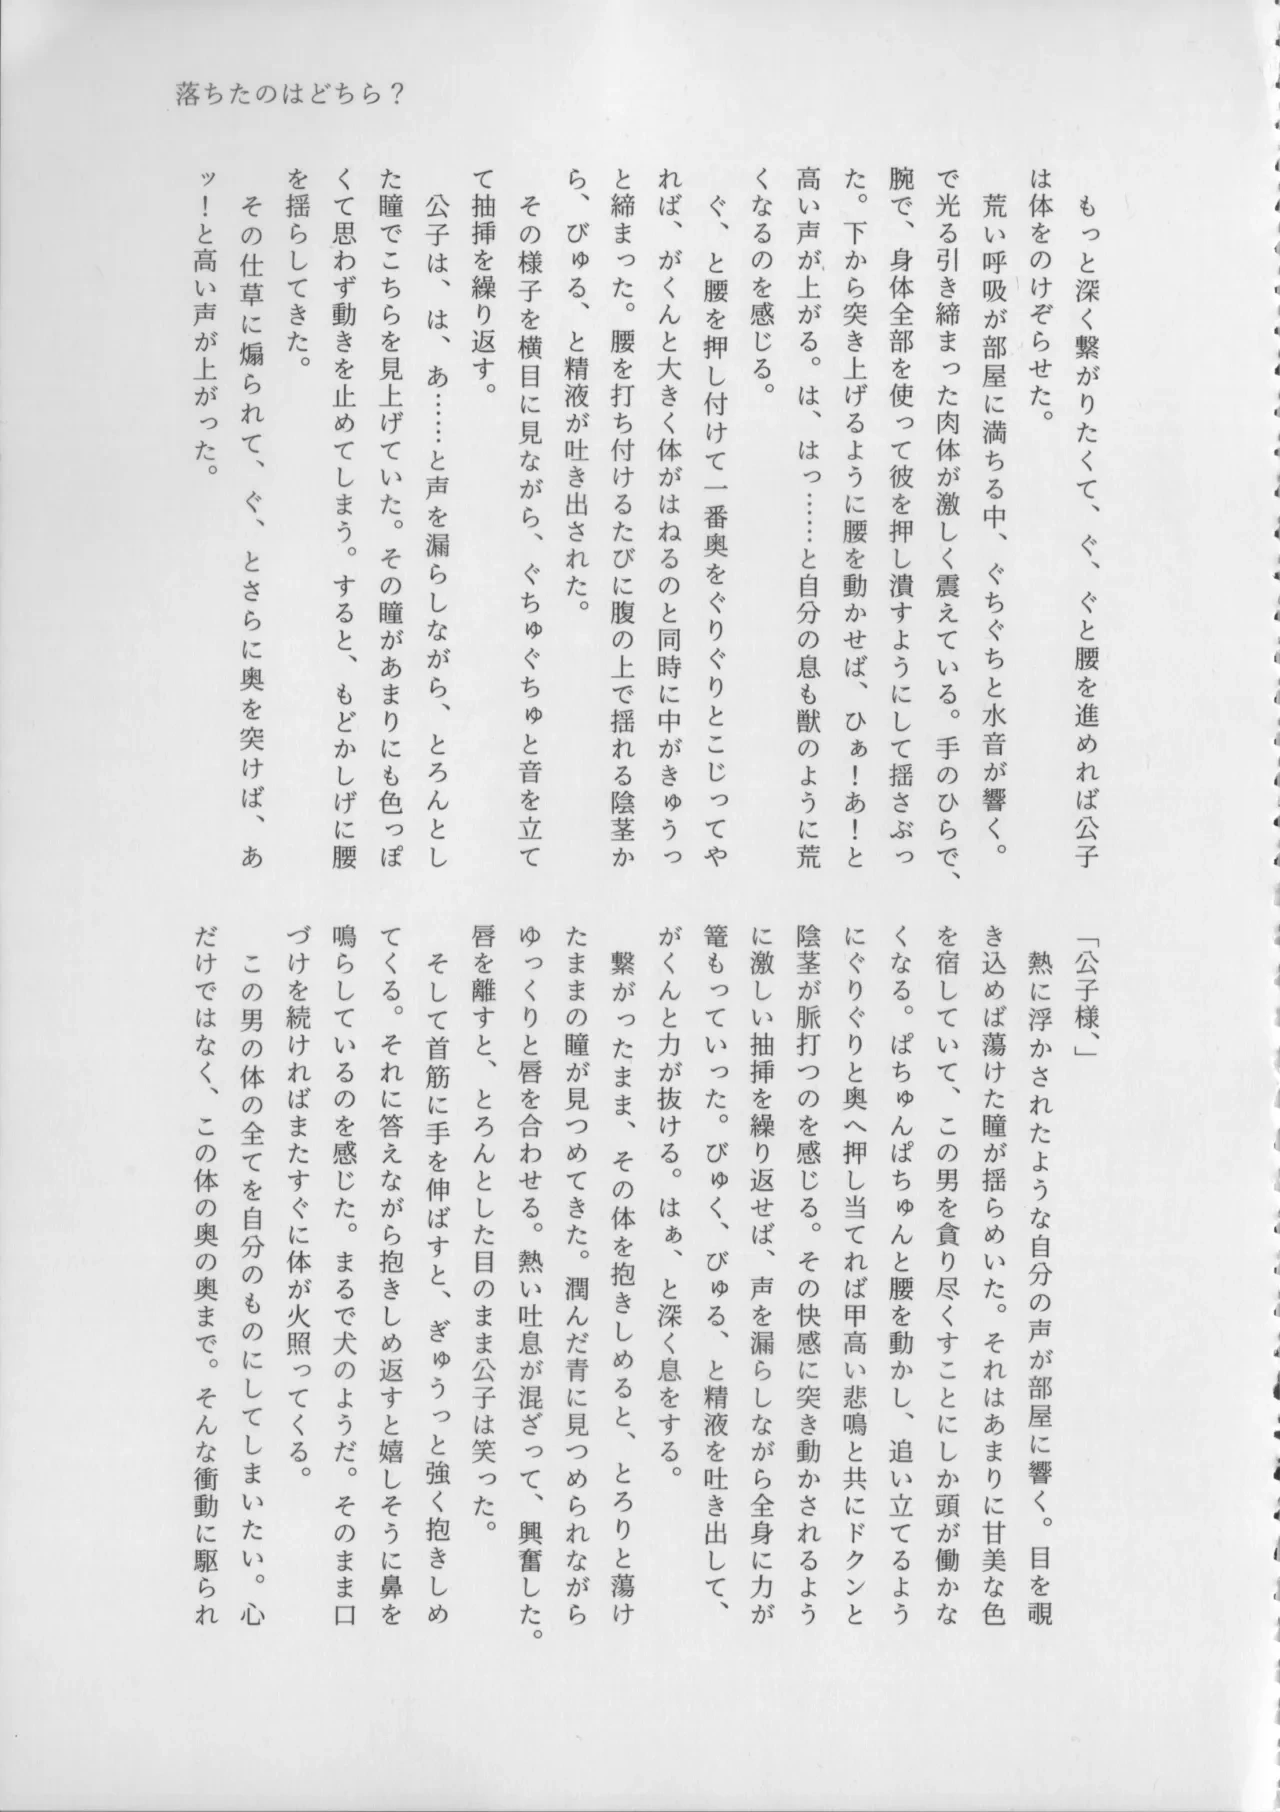 落ちたのはどちら？
　もっと深く繋がりたくて、ぐ、ぐと腰を進めれば公子
は体をのけぞらせた。
　荒い呼吸が部屋に満ちる中、ぐちぐちと水音が響く。
で光る引き締まった肉体が激しく震えている。手のひらで、
腕で、身体全部を使って彼を押し潰すようにして揺さぶっ
た。下から突き上げるように腰を動かせば、ひぁ！あ！と
高い声が上がる。は、はっ……と自分の息も獣のように荒
くなるのを感じる。
　ぐ、と腰を押し付けて一番奥をぐりぐりとこじってや
れば、がくんと大きく体がはねるのと同時に中がきゅうっ
と締まった。腰を打ち付けるたびに腹の上で揺れる陰茎か
ら、びゅる、と精液が吐き出された。
　その様子を横目に見ながら、ぐちゅぐちゅと音を立て
て抽挿を繰り返す。
　公子は、は、あ……と声を漏らしながら、とろんとし
た瞳でこちらを見上げていた。その瞳があまりにも色っぽ
くて思わず動きを止めてしまう。すると、もどかしげに腰
を揺らしてきた。
　その仕草に煽られて、ぐ、とさらに奥を突けば、あ
ッ！と高い声が上がった。
「公子様、」
　熱に浮かされたような自分の声が部屋に響く。目を覗
き込めば蕩けた瞳が揺らめいた。それはあまりに甘美な色
を宿していて、この男を貪り尽くすことにしか頭が働かな
くなる。ぱちゅんぱちゅんと腰を動かし、追い立てるよう
にぐりぐりと奥へ押し当てれば甲高い悲鳴と共にドクンと
陰茎が脈打つのを感じる。その快感に突き動かされるよう
に激しい抽挿を繰り返せば、声を漏らしながら全身に力が
篭もっていった。びゅく、びゅる、と精液を吐き出して、
がくんと力が抜ける。はぁ、と深く息をする。
　繋がったまま、その体を抱きしめると、とろりと蕩け
たままの瞳が見つめてきた。潤んだ青に見つめられながら
ゆっくりと唇を合わせる。熱い吐息が混ざって、興奮した。
唇を離すと、とろんとした目のまま公子は笑った。
　そして首筋に手を伸ばすと、ぎゅうっと強く抱きしめ
てくる。それに答えながら抱きしめ返すと嬉しそうに鼻を
鳴らしているのを感じた。まるで犬のようだ。そのまま口
づけを続ければまたすぐに体が火照ってくる。
　この男の体の全てを自分のものにしてしまいたい。心
だけではなく、この体の奥の奥まで。そんな衝動に駆られ